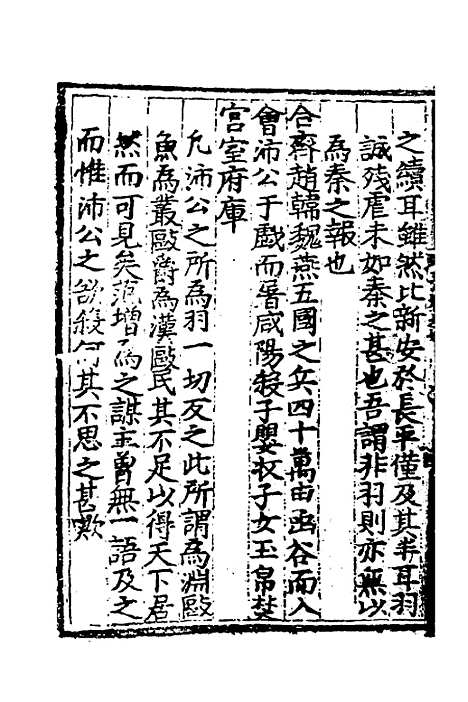 之續耳雖然比新安於長平僅及其半耳羽
誠殘虐未如秦之甚也吾謂非羽則亦無以
為秦之報也
合齊趙韓魏燕五國之兵四十萬由函谷而入
會沛公于戲而屠咸陽殺子嬰収子女玉帛焚
宮室府庫
凡沛公之所為羽一切反之此所謂為淵敺
魚為叢敺爵為漢敺民其不足以得天下居
然而可見矣范增為之謀主曽無一語及之
而惟沛公之欲殺何其不思之甚歟